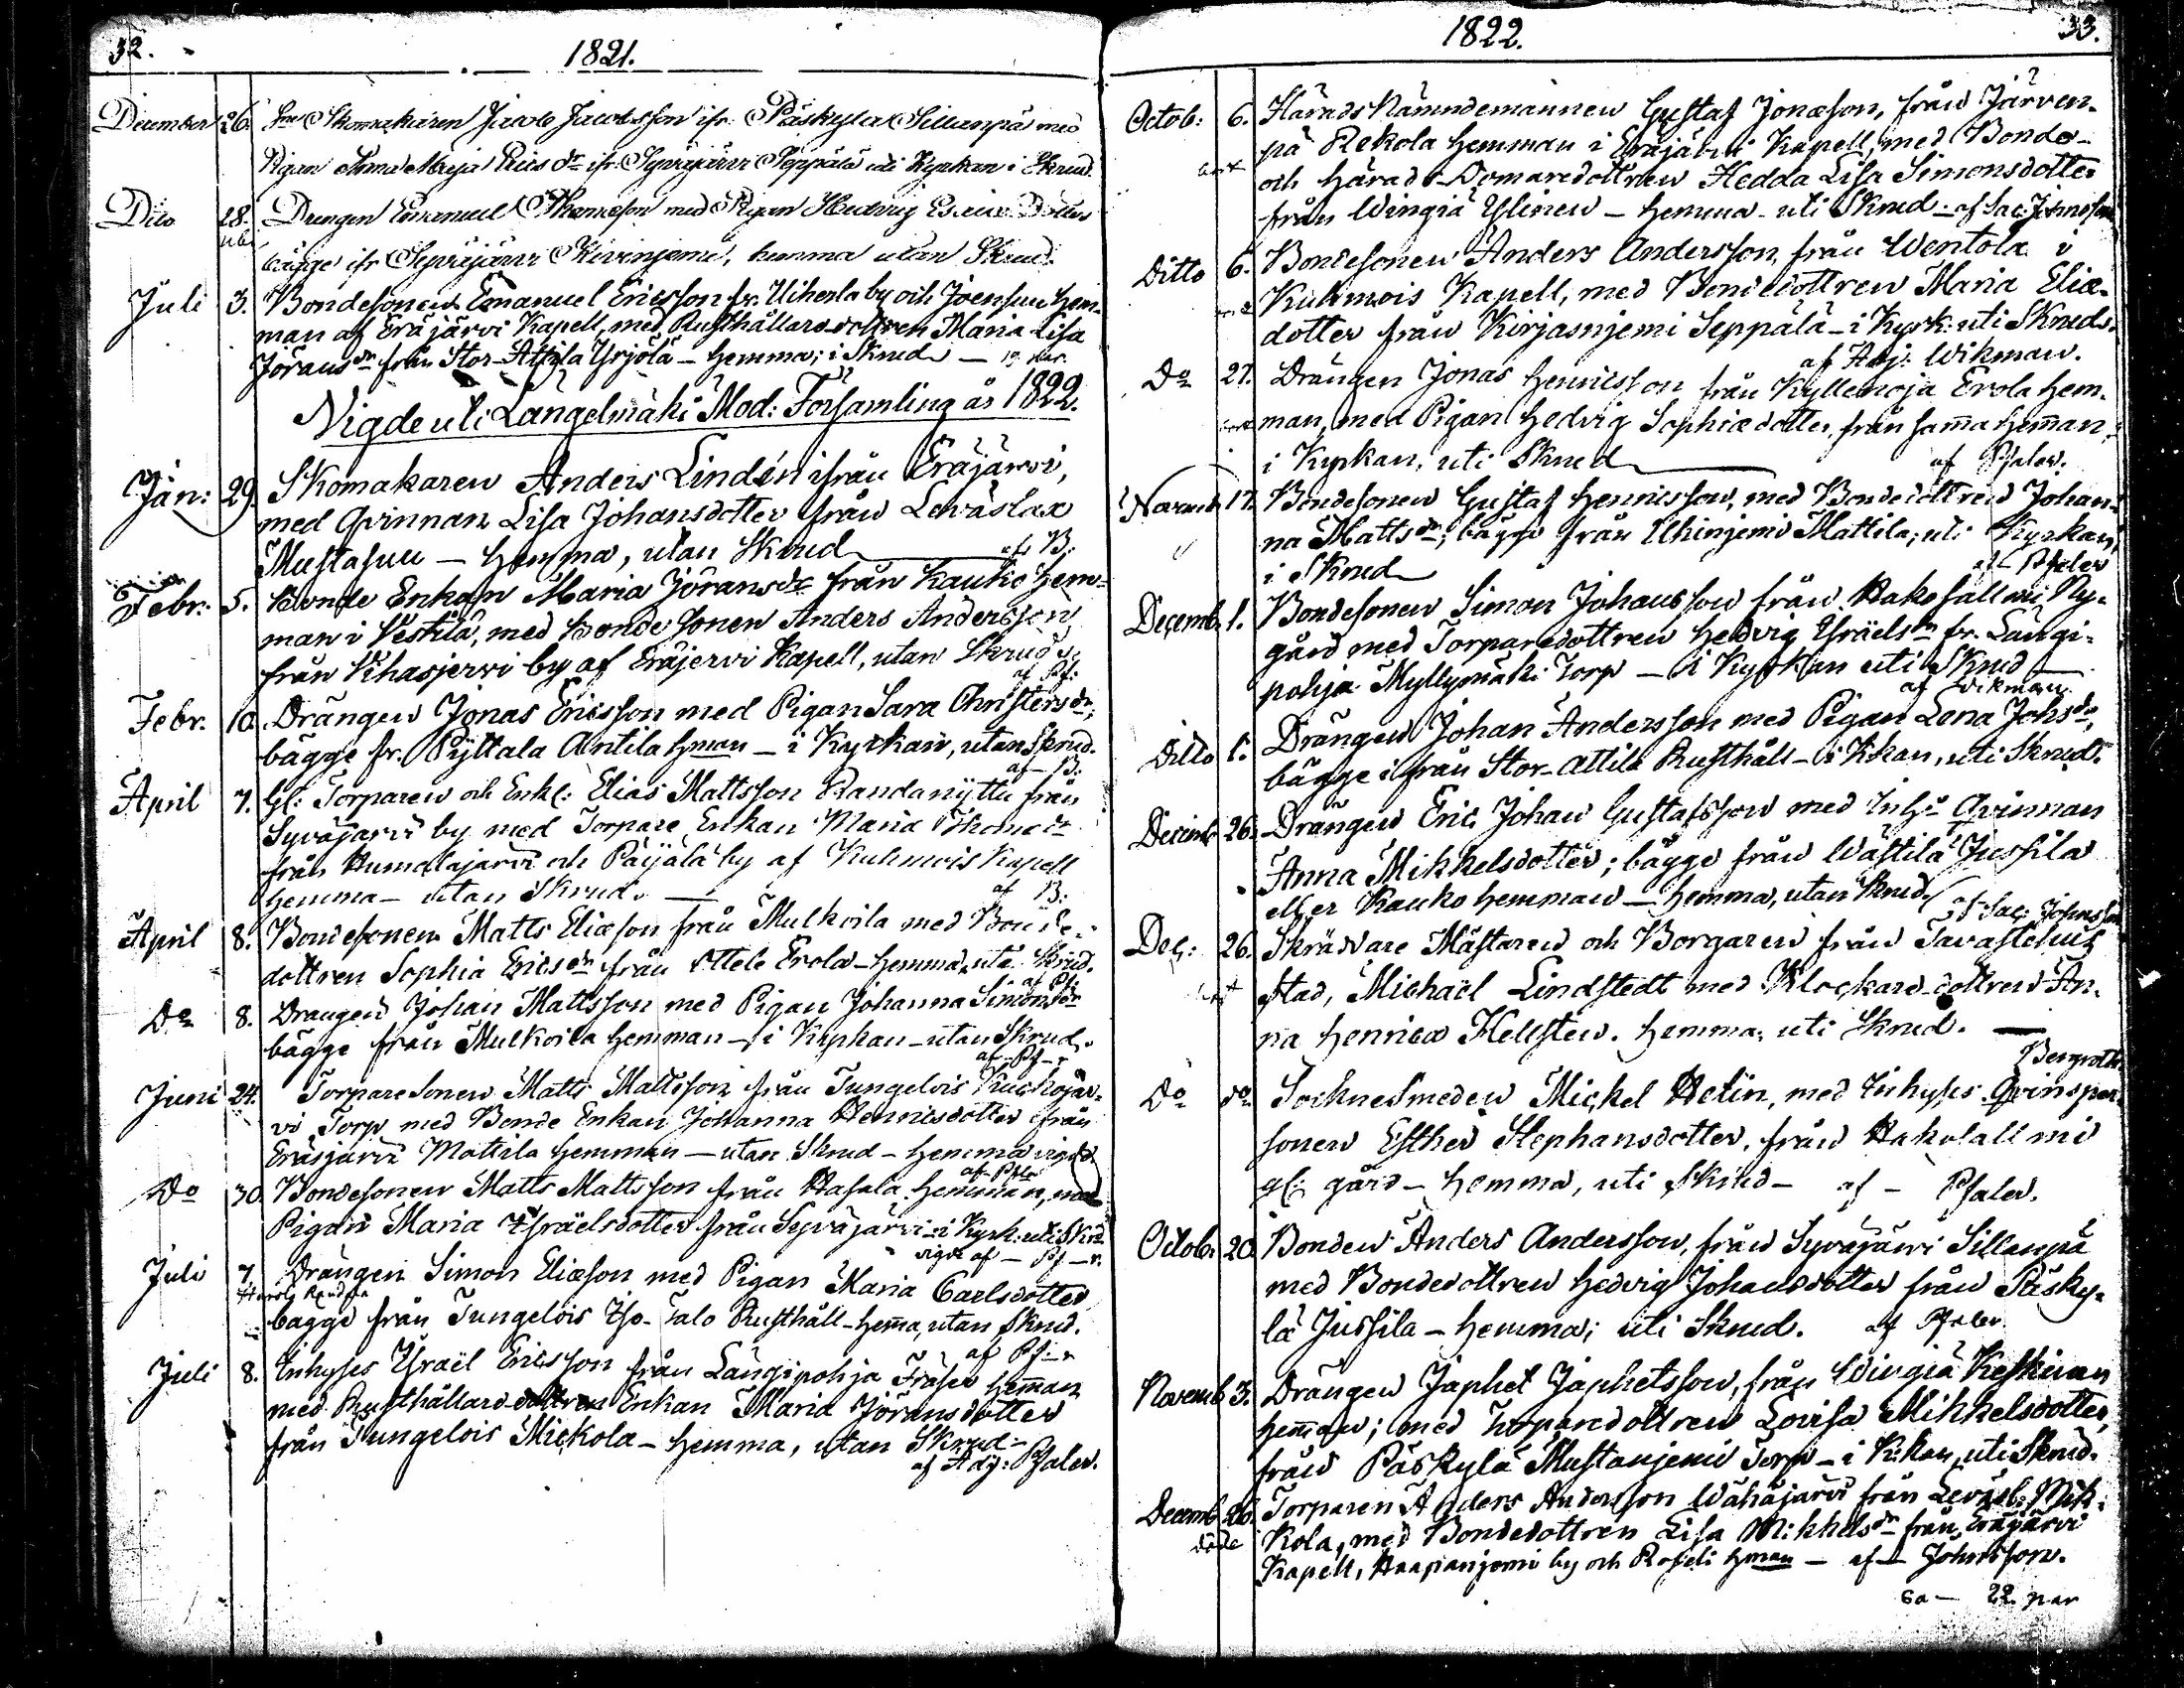 32.
1821.
December 26. Skomakaren Jacob Jacobsson ifr. Päskylä Sillanpä med
Pigan Anna Maja Erics dr ifr. Syväjärvi Seppälä uti Kyrkan i Skrud.
Dito 28. Drengen Emanuel Thomæson med Pigan Hedvig
bägge ifr Syväjärvi Kivinjemi, hemma utan Skrud.
Juli 3. Bondesonen Emanuel Ericsson fr. Uiherla by och Joensuu hem-
man af Eräjärvi Kapell, med Rusthållaredottren Maria Lisa
Jöransdr från Stor-Attila Yrjölä - hemma; i Skrud - 19 par.
Vigde uti Längelmäki Mod: Församling år 1822.
Jan: 29. Skomakaren Anders Lindén ifrån Eräjärvi,
med Qvinnan Lisa Johansdotter från Leväslax
Mustasuu - hemma, utan Skrud af B:
Febr: 5. Bonde Enkan Maria Jöransdr från Kauko hem-
man i Vestilä, med bonde Sonen Anders Andersson
från Vihasjervi by af Eräjervi Kapell, utan Skrud,
af Pf:
Febr. 10. Drängen Jonas Ericsson med Pigan Sara Christersdr,
bägge fr. Pyttala Antila hman - i Kyrkan, utan Skrud.
af - B:
April 7. Gl: Torparen och Enkl: Elias Mattsson Randanyttu från
Syväjärvi by med Torpare Enkan Maria Thomædr
från Humalajärvi och Päijälä by af Kuhmois Kapell
hemma - utan Skrud. - af B:
April 8. Bondesonen Matts Eliæson från Mulkoila med Bonde-
dottren Sophia Ericsdr från Ottele Erola - hemma, uti Skrud.
af Pf:
Do 8. Drängen Johan Mattsson med Pigan Johanna Simonsdr
bägge från Mulkoila hemman - i Kyrkan - utan Skrud.
af - Pf - r
Juni 24. Torparesonen Matts Mattsson från Jungelois Ruuhojär-
vi Torp med Bonde Enkan Johanna Henricsdotter från
Eräsjärvi Mattila hemman - utan Skrud - hemma vigde
af - Pfalr
Do 30. Bondesonen Matts Mattsson från Hasala hemman, med
Pigan Maria Israëlsdotter från Syväjärvi - i Kyrk: uti Skrud
vigde af - Pf - r.
Juli 7. Drängen Simon Eliæson med Pigan Maria Carlsdotter
bägge från Jungelois Iso-Talo Rusthåll - hema, utan Skrud.
af Pf - r
Juli 8. Inhyses Israël Ericsson från Längipohja Fräsen heman
med Rusthållare dottren Enkan Maria Jöransdotter
från Jungelois Mickola - hemma, utan Skrud -
af Adj: Pfaler.
1822.
33.
Octob: 6. Härads Nämndemannen Gustaf Jonæson, från Järven-
pä Rekola hemman i Eräjärvi Kapell, med Bonde-
och härads-Domaredottren Hedda Lisa Simonsdotter
från Wingiä Ylinen - hemma - uti Skrud - af Sac: Johnsson
Ditto 6. Bondesonen Anders Andersson, från Wentola i
Kuhmois Kapell, med Bondedottren Maria Eliæ-
dotter från Kirjasnjemi Seppälä - i Kyrk: uti Skrud.
af Adj: Wikman.
Do 27. Drängen Jonas Henricsson från Kyllenoja Erola hem-
man, med Pigan Hedvig Sophiædotter, från sama heman,
i Kyrkan, uti Skrud af Pfaler.
Novemb 17. Bondesonen Gustaf Henricsson, med Bondedottren Johan-
na Mattsdr, bägge från Uhinjemi Mattila, uti Kyrkan,
i Skrud af Pfaler
Decemb. 1. Bondesonen Simon Johansson från Hakosallmi Ny-
gård med Torparedottren Hedvig Israëlsdr fr. Längi-
pohja Myllymäki Torp - i Kyrkan uti Skrud
af Wikman
Ditto 1. Drängen Johan Andersson med Pigan Lena Johsdr,
bägge ifrån Stor-Attila Rusthåll - i Kkan, uti Skrud.
Decemb 26. Drängen Eric Johan Gustafsson med Inhs Qvinnan
Anna Mikkelsdotter; bägge från Wästilä Jussila
eller Kauko hemman - hemma, utan Skrud.
af Sac: Johnsson
Dec: 26. Skräddare Mästaren och Borgaren från Tavastehus
stad, Michaël Lindstedt med Klockaredottren An-
na Henrica Hellsten. hemma, uti Skrud. -
Bergroth
Do do Sockne Smeden Mickel Helin, med Inhyses Qvinsper-
sonen Esther Stephansdotter, från Hakosallmi
gl: gård - hemma, uti Skrud - af - Pfaler.
Octob. 20. Bonden Anders Andersson, från Syväjärvi Sillanpä
med Bondedottren Hedvig Johansdotter från Päsky-
lä Jussila - hemma; uti Skrud. af Pfaler.
Novemb 3. Drängen Japhet Japhetsson, från Wingiä Keskinen
heman; med Torparedottren Lovisa Mikkelsdotter,
från Päskylä Mustanjemi Torp - i Kkan, uti Skrud.
Decemb 26. Torparen Anders Andersson Wähäjärvi från Leväsl: Mik-
kola, med Bondedottren Lisa Mikkelsdr från Eräjärvi
Kapell, Haapanjemi by och Roseli hman - af - Johnsson.
Sa - 22 par